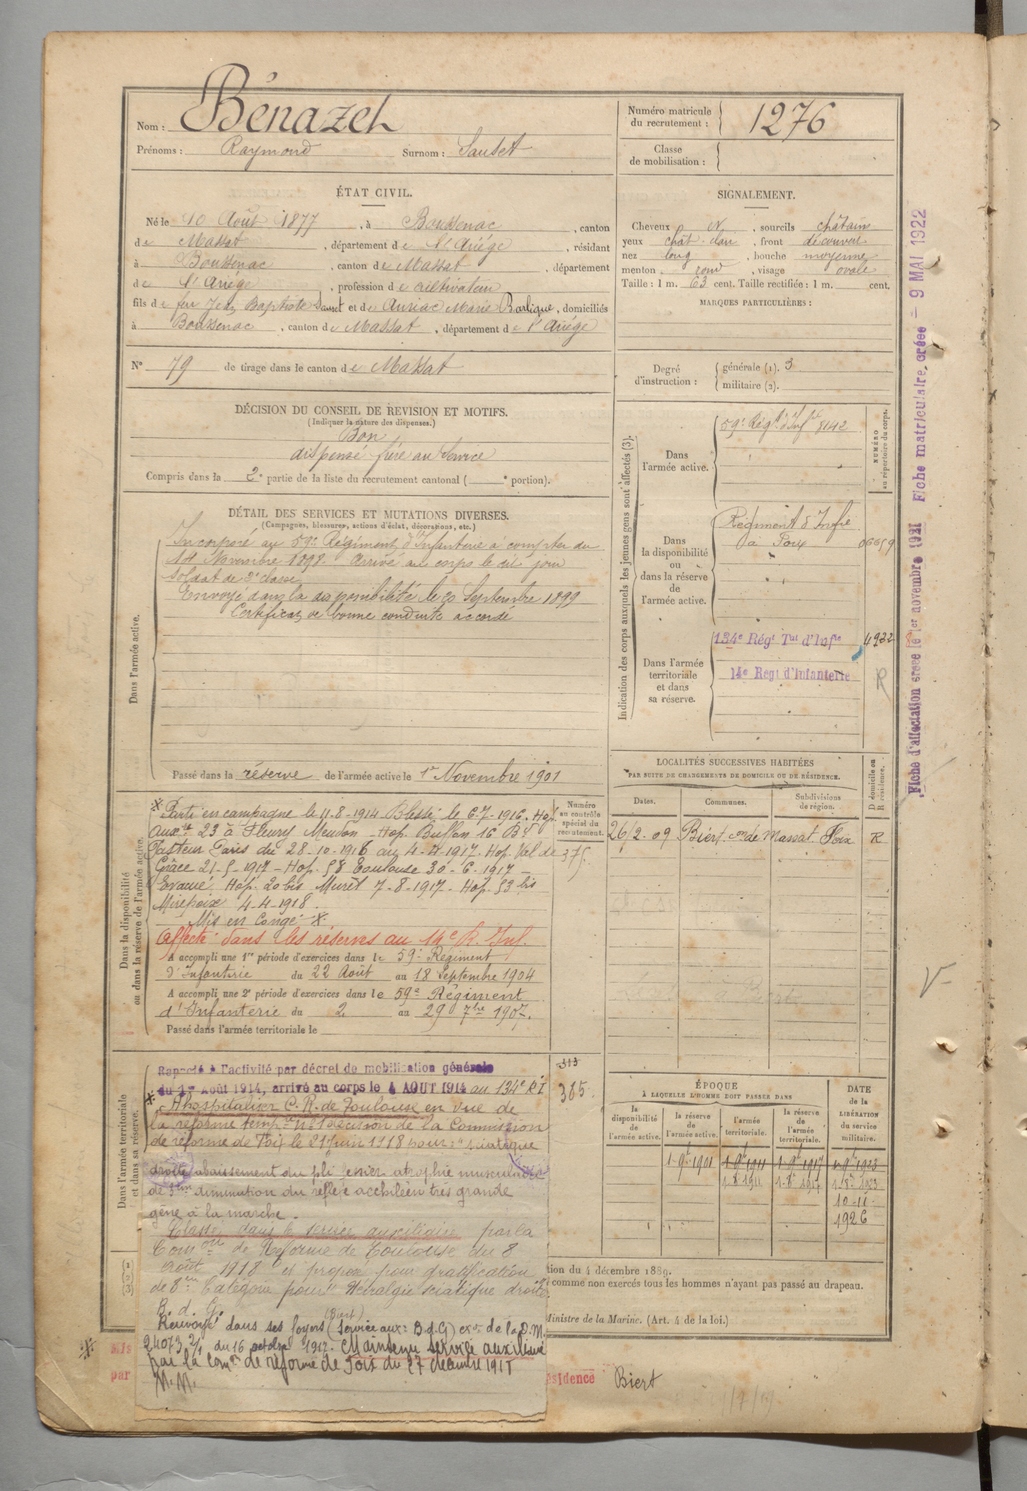 Nom : Bénazet
Prénoms : Raymond Surnom : Sautet
Numéro matricule du recrutement : 1276
Classe de mobilisation :
ÉTAT CIVIL.
Né le 10 Août 1877, à Boussenac, canton
de Massat, département de l'Ariége, résidant
à Boussenac, canton de Massat, département
de l'Ariége, profession de cultivateur
fils de feu Jean Baptiste Sautet et de Auriac Marie, domiciliés
à Boussenac, canton de Massat, département de l'Ariége
N° 79 de tirage dans le canton de Massat
SIGNALEMENT.
Cheveux N, sourcils châtain
yeux chât. clair, front découvert
nez long, bouche moyenne
menton rond, visage ovale
Taille : 1 m. 63 cent. Taille rectifiée : 1 m. cent.
MARQUES PARTICULIÈRES :
Degré d'instruction : générale (1). 3
militaire (2).
DÉCISION DU CONSEIL DE REVISION ET MOTIFS.
(Indiquer la nature des dispenses.)
Bon
dispensé frère au service
Compris dans la 2e partie de la liste du recrutement cantonal ( e portion).
DÉTAIL DES SERVICES ET MUTATIONS DIVERSES.
(Campagnes, blessures, actions d'éclat, décorations, etc.)
Dans l'armée active.
Incorporé au 59e Régiment d'Infanterie à compter du
14 Novembre 1898. Arrivé au corps le dit jour
soldat de 2e classe
Envoyé dans la disponibilité le 20 Septembre 1899
Certificat de bonne conduite accordé
Passé dans la réserve de l'armée active le 1er Novembre 1901
Indication des corps auxquels les jeunes gens sont affectés (3).
NUMÉRO au répertoire du corps.
Dans l'armée active.
59e Régt d'Infie 8142
Dans la disponibilité ou dans la réserve de l'armée active.
Régiment d'Infie
à Foix
Dans l'armée territoriale et dans sa réserve.
134e Régt Tal d'Infie 4932
14e Régt d'Infanterie R
LOCALITÉS SUCCESSIVES HABITÉES
PAR SUITE DE CHANGEMENTS DE DOMICILE OU DE RÉSIDENCE.
Dates. Communes. Subdivisions de région. D domicile ou R résidence.
26/2-09 Biert con de Massat Foix R
Dans la disponibilité ou dans la réserve de l'armée active
Numéro au contrôle spécial du recrutement.
375
* Parti en campagne le 11-8-1914 Blessé le 6-7-1916. Hop.
auxre 23 à Fleury Meudon - Hop. Buffon 16 Bd
Pasteur Paris du 28-10-1916 au 4-4-1917. Hop. Val de
Grâce 21-5-1917 - Hop. 58 Toulouse 30-6-1917 -
Evacué Hop. 20 bis Muret 7-8-1917 - Hop. 53 bis
Mirepoix 4-4-1918
Mis en Congé *
Affecté dans les réserves au 14e R. Inf.
A accompli une 1re période d'exercices dans le 59e Régiment
d'Infanterie du 22 Août au 18 Septembre 1904
A accompli une 2e période d'exercices dans le 59e Régiment
d'Infanterie du 2 au 29 7bre 1907.
Passé dans l'armée territoriale le
Dans l'armée territoriale et dans sa réserve.
313
365
Rappelé à l'activité par décret de mobilisation générale
du 1er Août 1914, arrivé au corps le 4 AOUT 1914 au 134e RI
* A hospitaliser C. R. de Toulouse en vue de
la réforme temp. N° 1 décision de la Commission
de réforme de Foix le 21 juin 1918 pour : sciatique
droite abaissement du pli fessier atrophie musculaire
de 3 cm diminution du réflexe achiléen très grande
gêne à la marche.
Classé dans le service auxiliaire par la
Comon de Réforme de Toulouse du 8
août 1918 et proposé pour gratification
de 8me Catégorie pour "Névralgie sciatique droite"
B. d. G.
Renvoyé dans ses foyers (Biert) (Service aux. B d G)
24073 2/1 du 16 octobre Maintenu service auxiliaire
par la comon de réforme de Foix du 27 décembre
ÉPOQUE
À LAQUELLE L'HOMME DOIT PASSER DANS
la disponibilité de l'armée active. la réserve de l'armée active. l'armée territoriale. la réserve de l'armée territoriale.
DATE de la LIBÉRATION du service militaire.
1-9bre 1901 1-9bre 1911 1-9bre 1917 1-9bre 1923
1-8 1911 1-8 1917
10-11-1926
tion du 4 décembre 1889.
comme non exercés tous les hommes n'ayant pas passé au drapeau.
Ministre de la Marine. (Art. 4 de la loi.)
par
ésidence Biert
Fiche d'affectation créée le 1er novembre 1921 Fiche matriculaire, créée - 9 MAI 1922